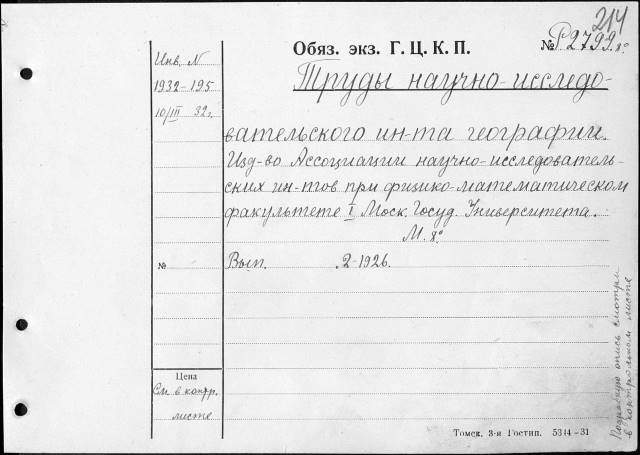 214
Обяз. экз. Г. Ц. К. П.
№ Р2799 8°
Инв. N
1932-195
10/III 32 г.
Труды научно-исследо-
вательского ин-та географии.
Изд-во Ассоциации научно-исследователь-
ских ин-тов при физико-математическом
факультете I Моск. Госуд. Университета.
М. 8°
№
Вып. 2-1926.
Цена
См. в контр.
листе
Подробную опись смотри
в контрольном листе
Томск. 3-я Гостип. 5344—31